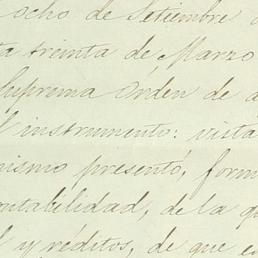 ocho de Setiembre
ta treinta de Marzo
Suprema Orden de a
l instrumento: vista
mismo presentó, form
ontabilidad, de la q
l y réditos, de que e